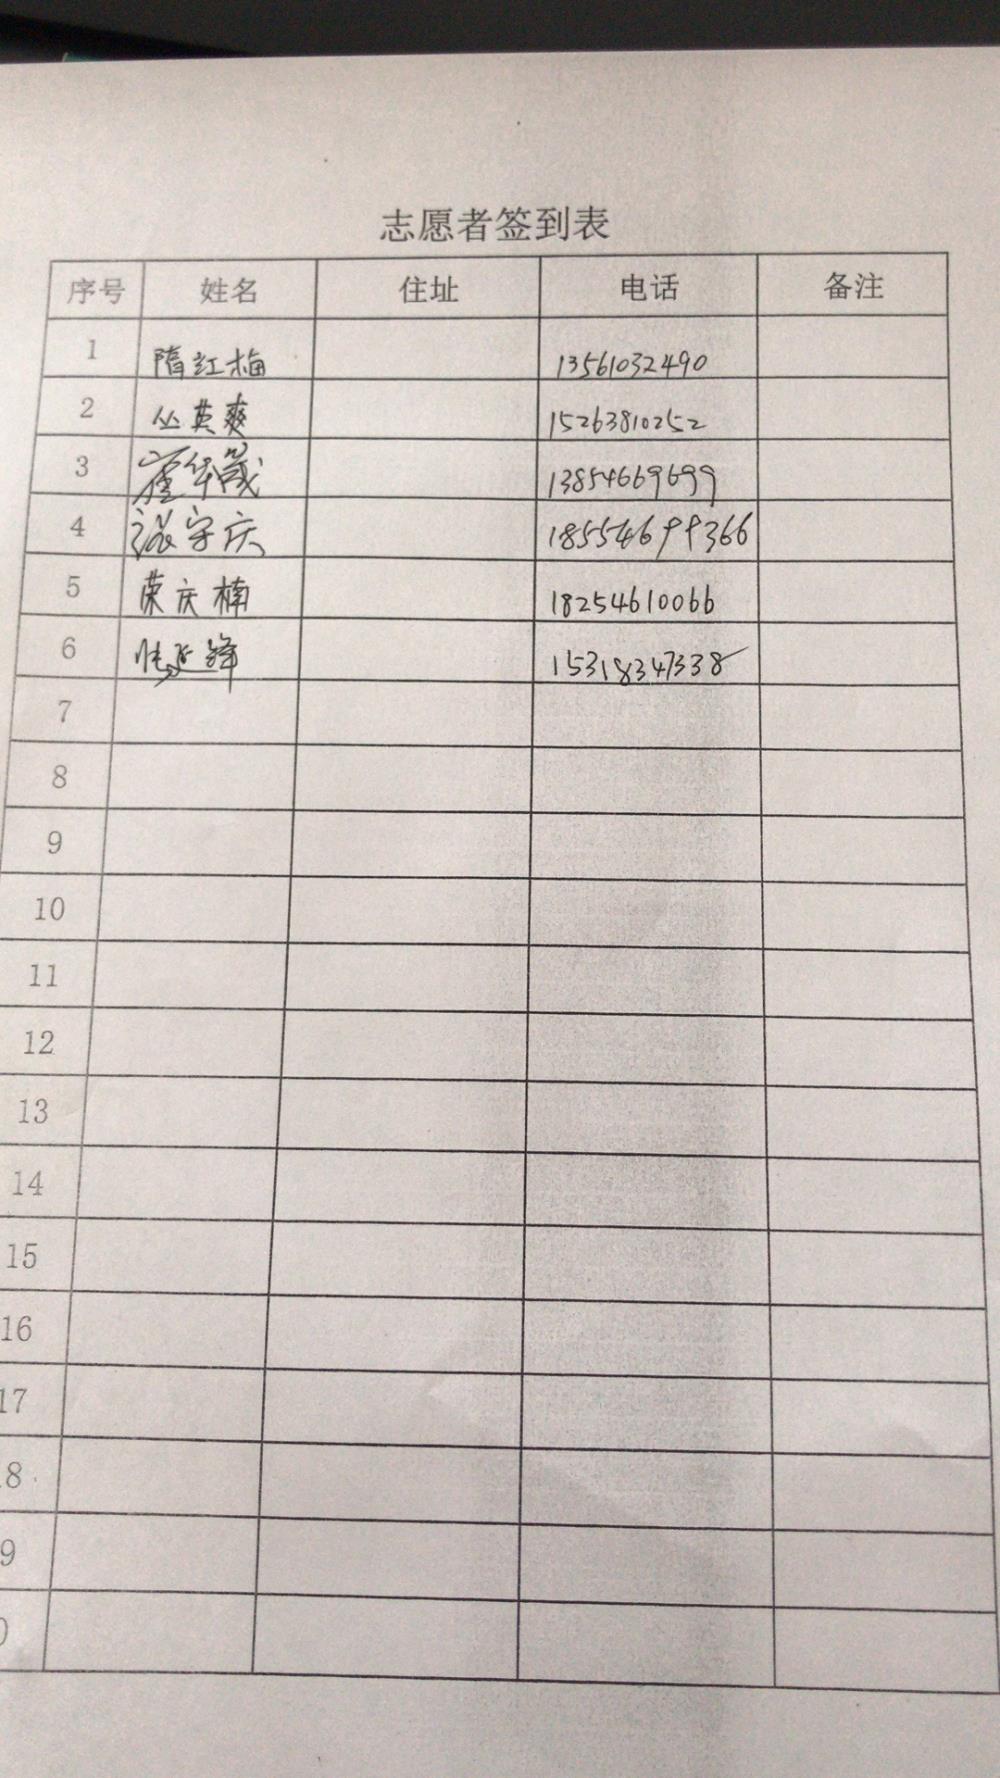 志愿者签到表
序号 姓名 住址 电话 备注
1 隋红梅 13561032490
2 丛英爽 15263810252
3 13854669699
4 守庆 18554699366
5 荣庆楠 18254610066
6 15318347338
7
8
9
10
11
12
13
14
15
16
17
8
9